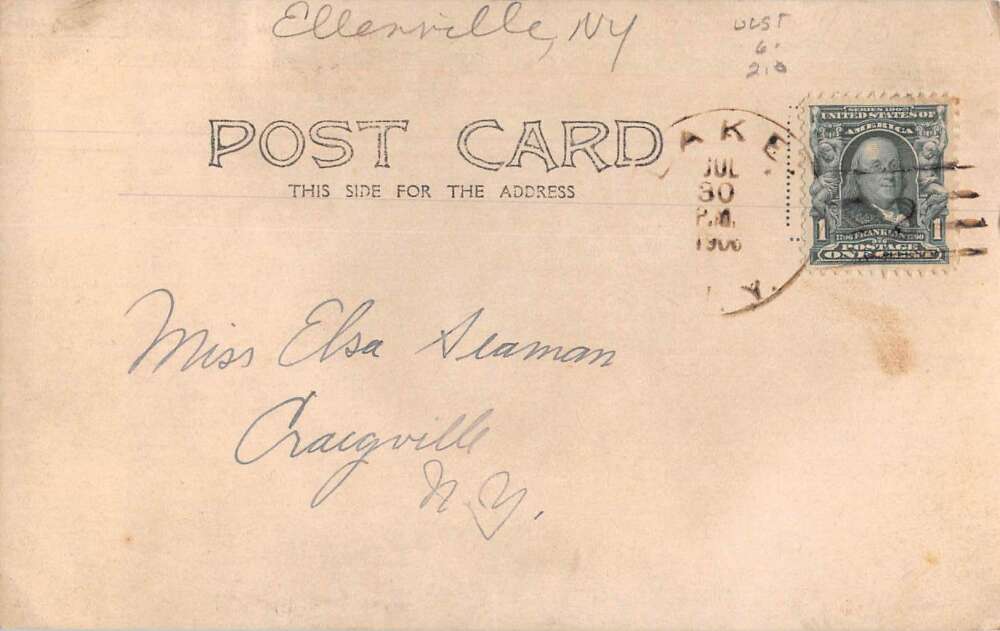 Ellenville, NY
ULST
6.
210
POST CARD
THIS SIDE FOR THE ADDRESS
AKE
JUL
30
P.M.
1906
Y.
SERIES 1902
UNITED STATES OF
AMERICA
1 1706 FRANKLIN 1790 1
POSTAGE
ONE CENT
Miss Elsa Seaman
Craigville
N.Y.